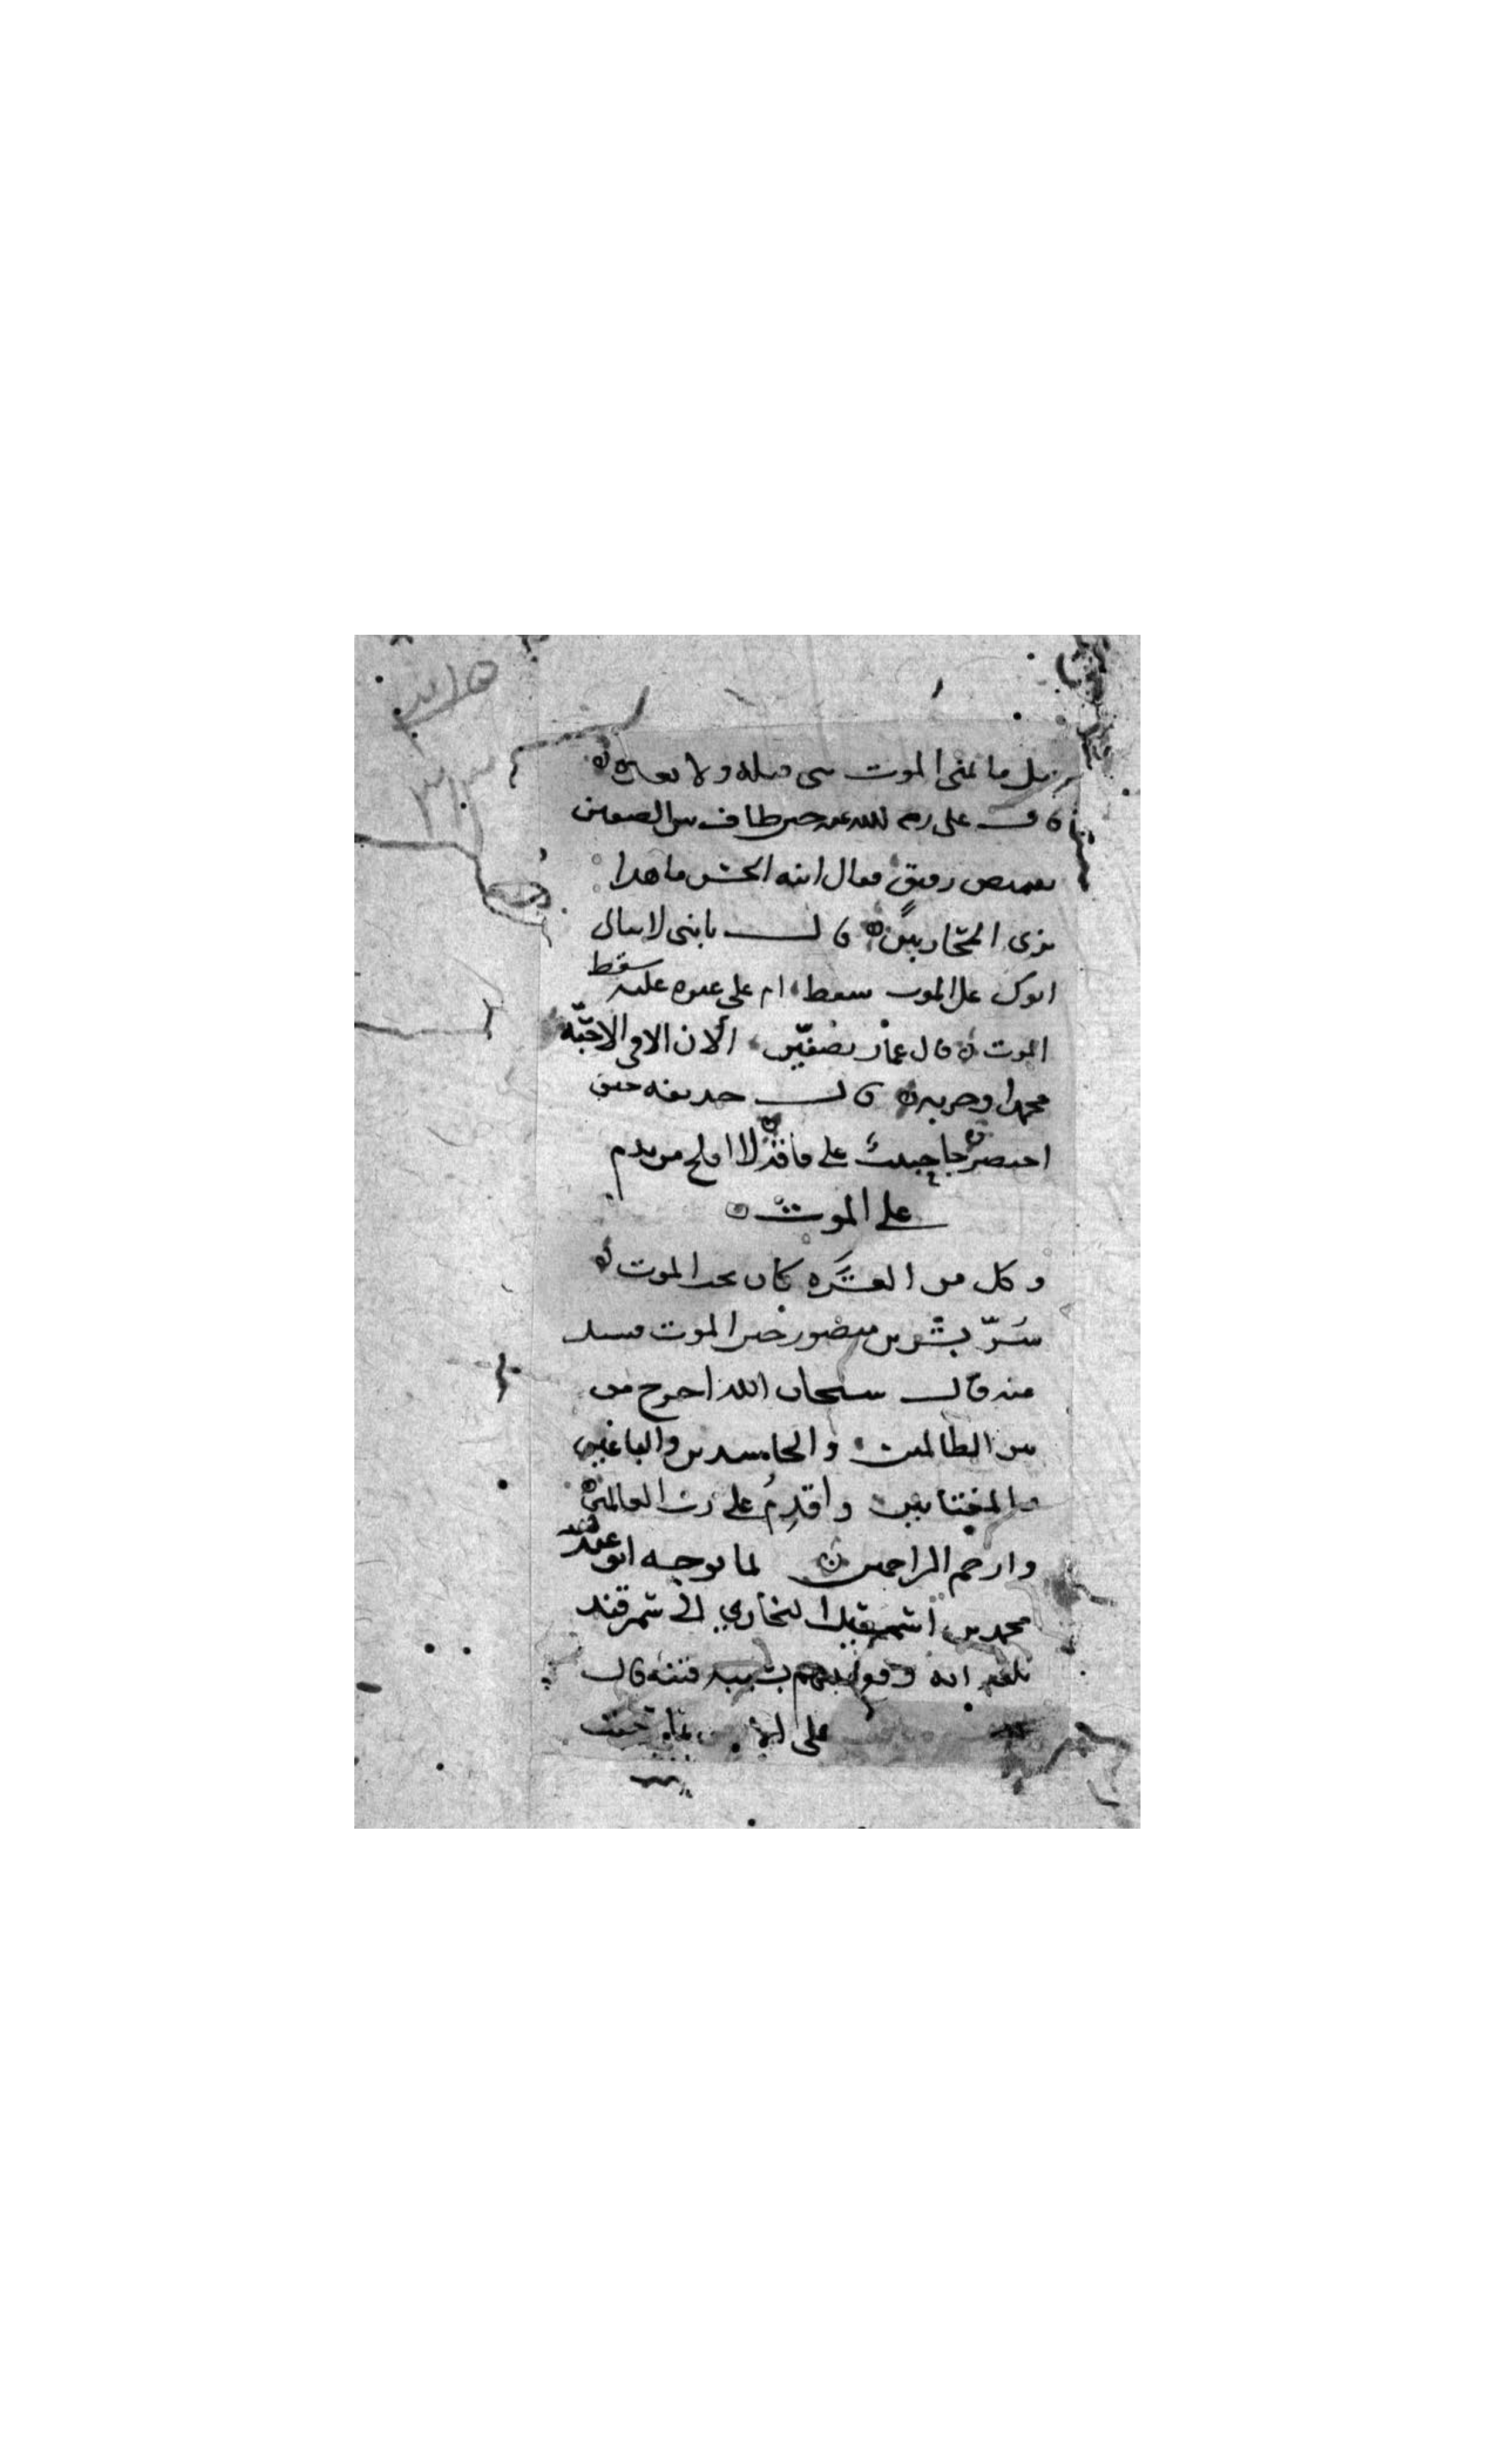 قيل ما تمنى الموت نبي قبله ولا بعده ه
قال على رضى الله عنه حين طاف بين الصفين
بقميص رقيق فقال ابنه الحسن ما هذا
بزى المحاربين ه قال يا بنى لا يبالى
ابوك على الموت سقط ام على غيره عليه سقط
الموت ه قال عمار بصفين الان الاقى الاحبه
محمدا وحزبه ه قال حذيفه حين
احتضر جا حبيب على فاقه لا افلح من ندم
على الموت ه
وكل من العشره كان يحب الموت ه
سر بشر بن منصور حين الموت فسيل
عنه قال سبحان الله اخرج من
بين الظالمين والحاسدين والباغين
والمغتابين واقدم على رب العالمين ه
وارحم الراحمين ه لما توجه ابو عبد الله
محمد بن اسمعيل البخاري الى سمرقند
بلغه انه وقع بينهم بسببه فتنه قال
على الارض بما رحبت
٣١٥
٣١٣